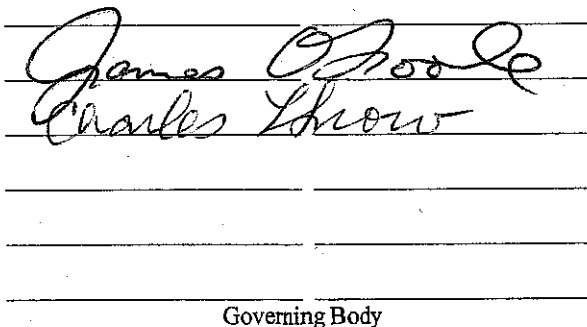 James O. Poole
Charles Throw
Governing Body